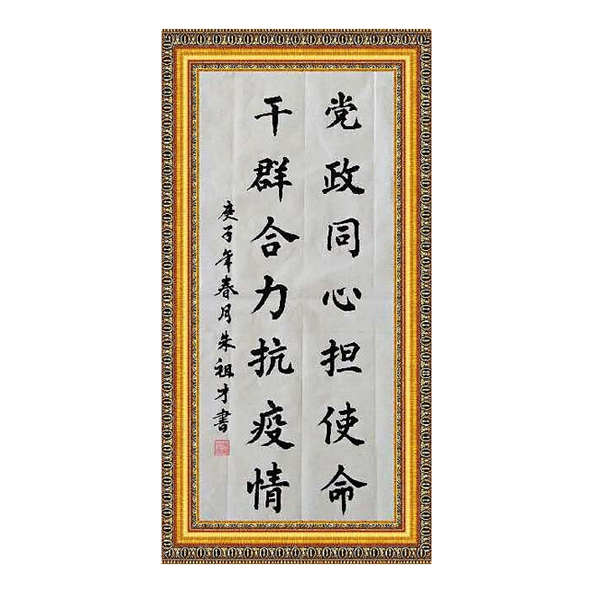 党政同心担使命
干群合力抗疫情
庚子年春月朱祖才書